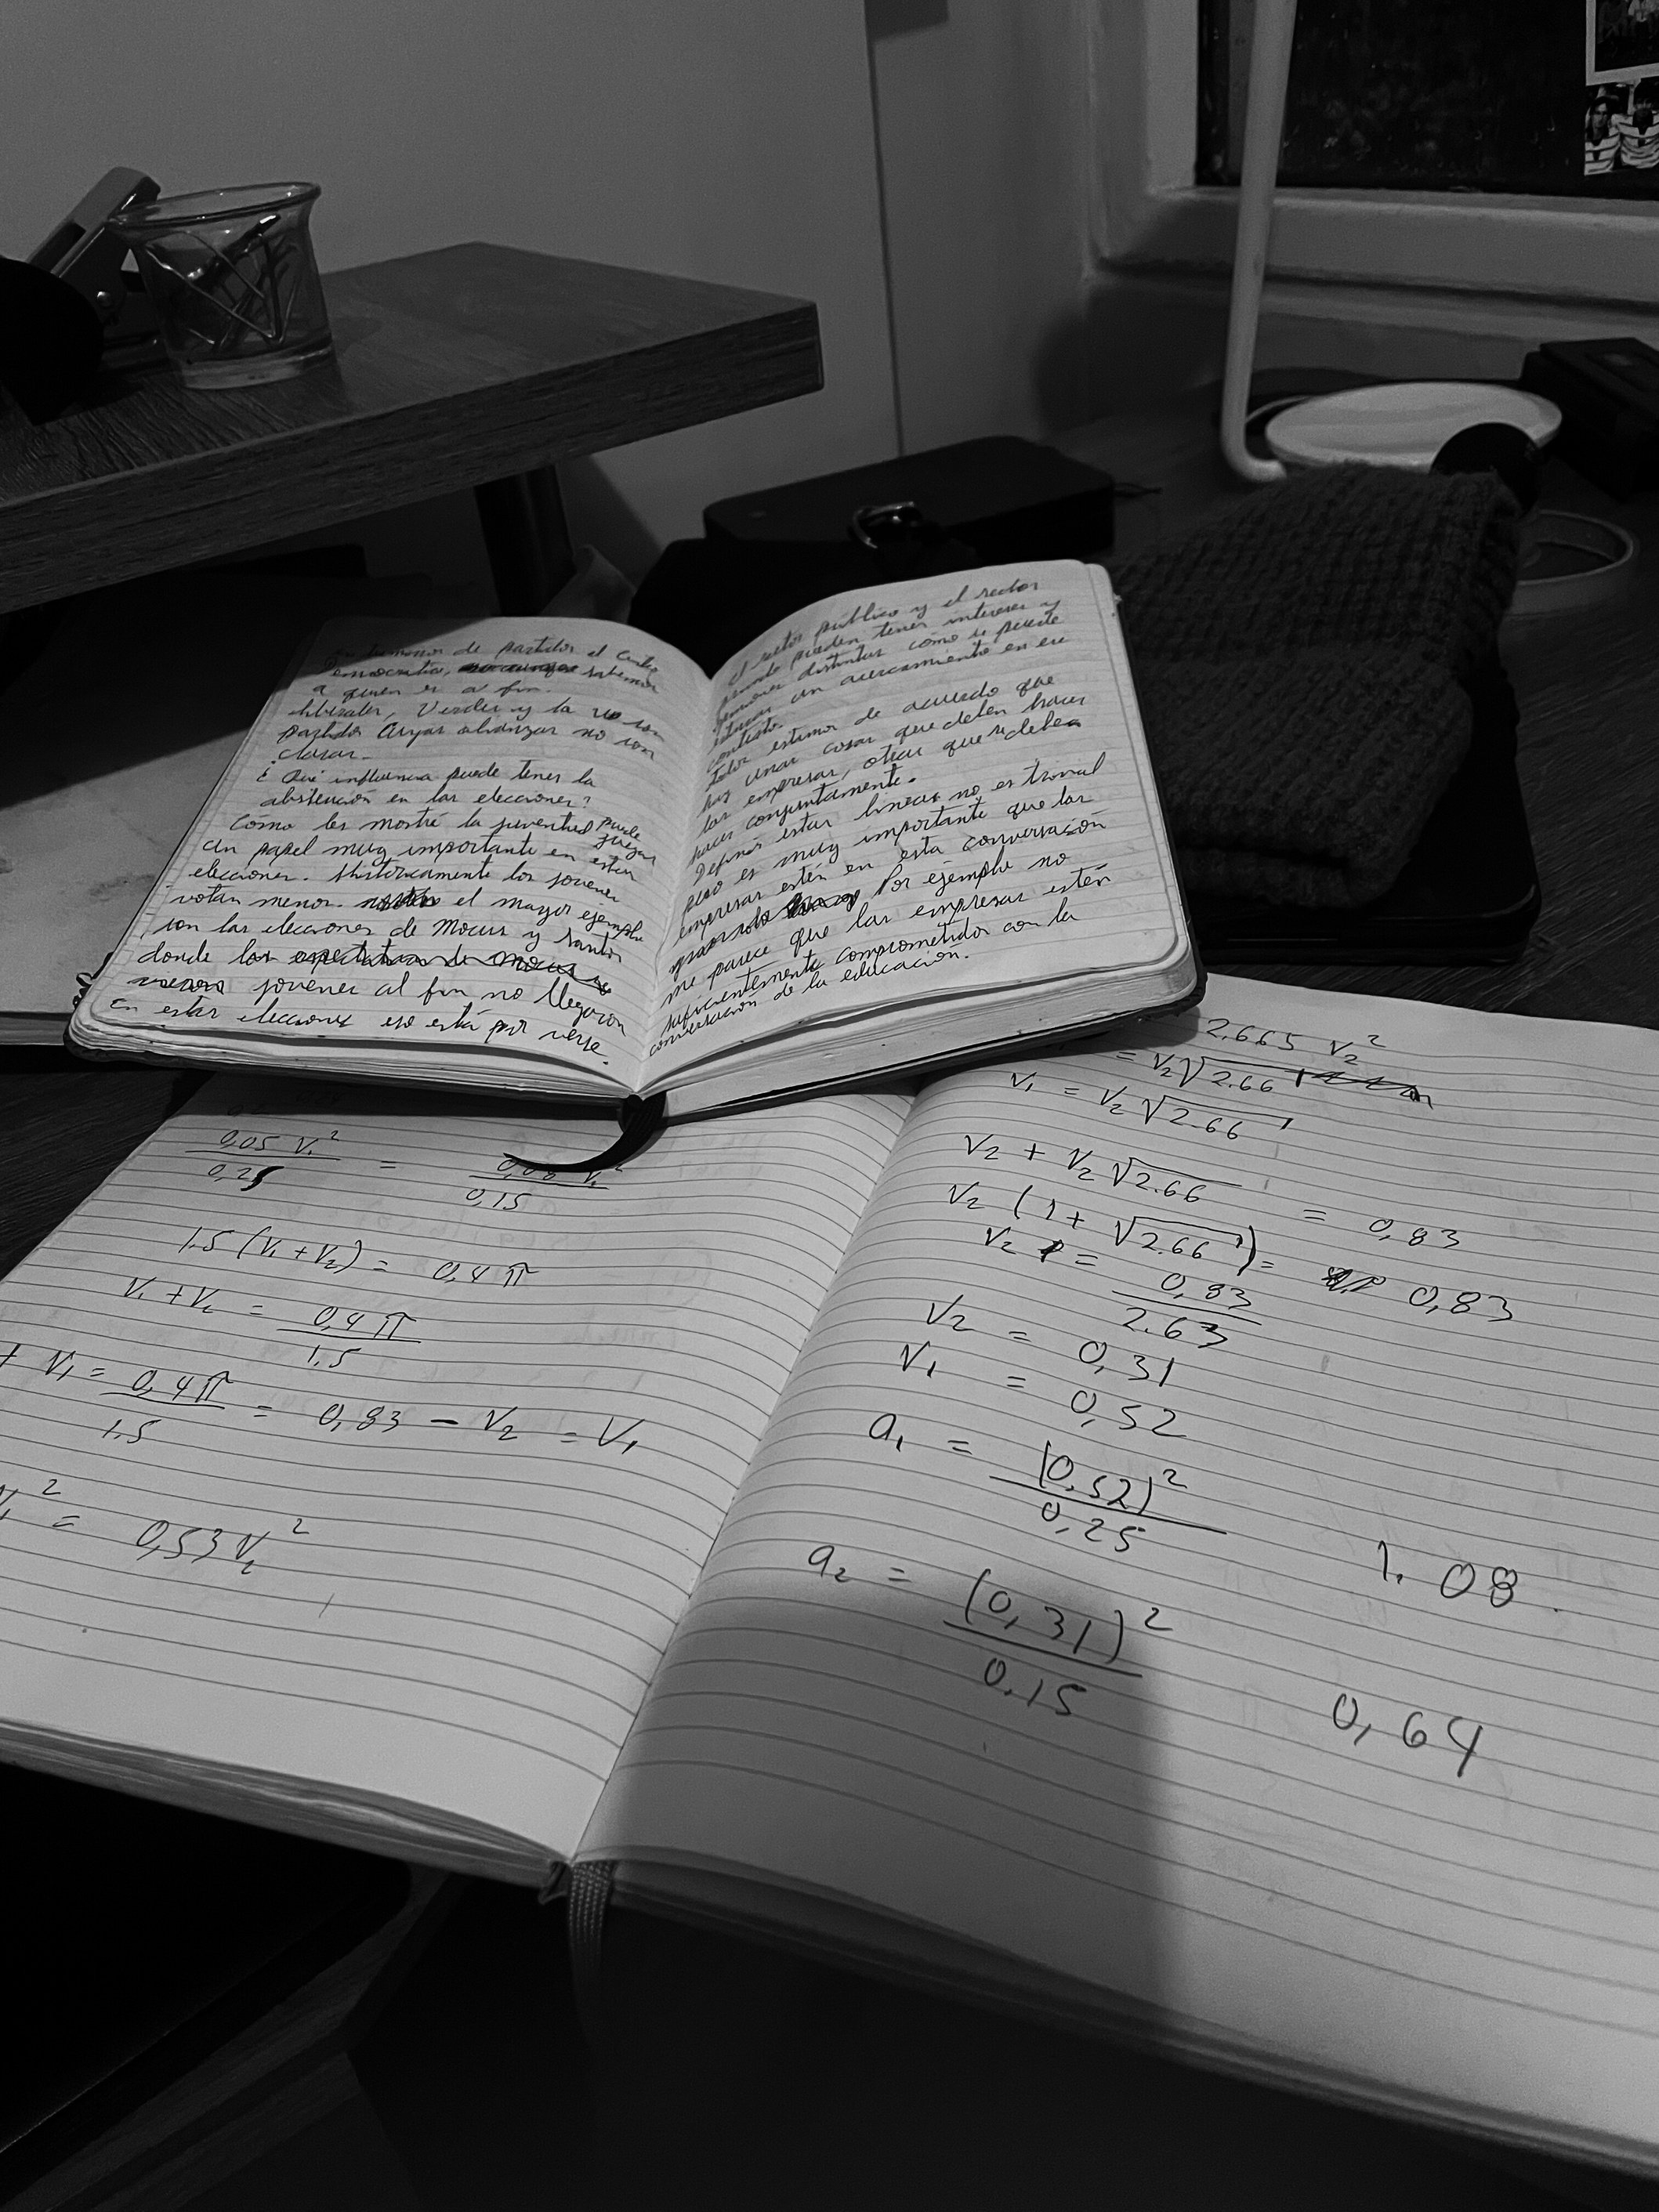 de partidos el Centro
Democratico, sabemos
a quien es a fin.
liberales, Verdes y la U no son
partidos Cuyas alianzas no son
claras.
¿ Qué influencia puede tener la
abstención en las elecciones?
Como les mostré la juventud puede jugar
un papel muy importante en estas
elecciones. Historicamente los jovenes
votan menos. el mayor ejemplo
son las elecciones de Mocus y Santos
donde los
jovenes al fin no llegaron
en estas elecciones eso está por verse.
El sector público y el sector
privado pueden tener intereses y
distintas como se puede
un acercamiento en ese
contexto
Todos estamos de acuerdo que
hay unas cosas que deben hacer
las empresas, otras que se deben
hacer conjuntamente.
Definir estas lineas no es trivial
pero es muy importante que las
empresas estén en esta conversación
Por ejemplo no
me parece que las empresas estén
suficientemente comprometidas con la
conversación de la educación.
0,05 V₁² / 0,25 = V₂² / 0,15
1.5 (V₁ + V₂) = 0,4 π
V₁ + V₂ = 0,4 π / 1.5
+ V₁ = 0,4 π / 1.5 = 0,83 - V₂ = V₁
V₁² = 0,53 V₂²
2.665 V₂²
= V₂ √2.66
V₁ = V₂ √2.66
V₂ + V₂ √2.66 = 0,83
V₂ (1 + √2.66) = 0,83
V₂ = 0,83 / 2.63
V₂ = 0,31
V₁ = 0,52
a₁ = (0,52)² / 0,25 1.08
a₂ = (0,31)² / 0,15 0,64